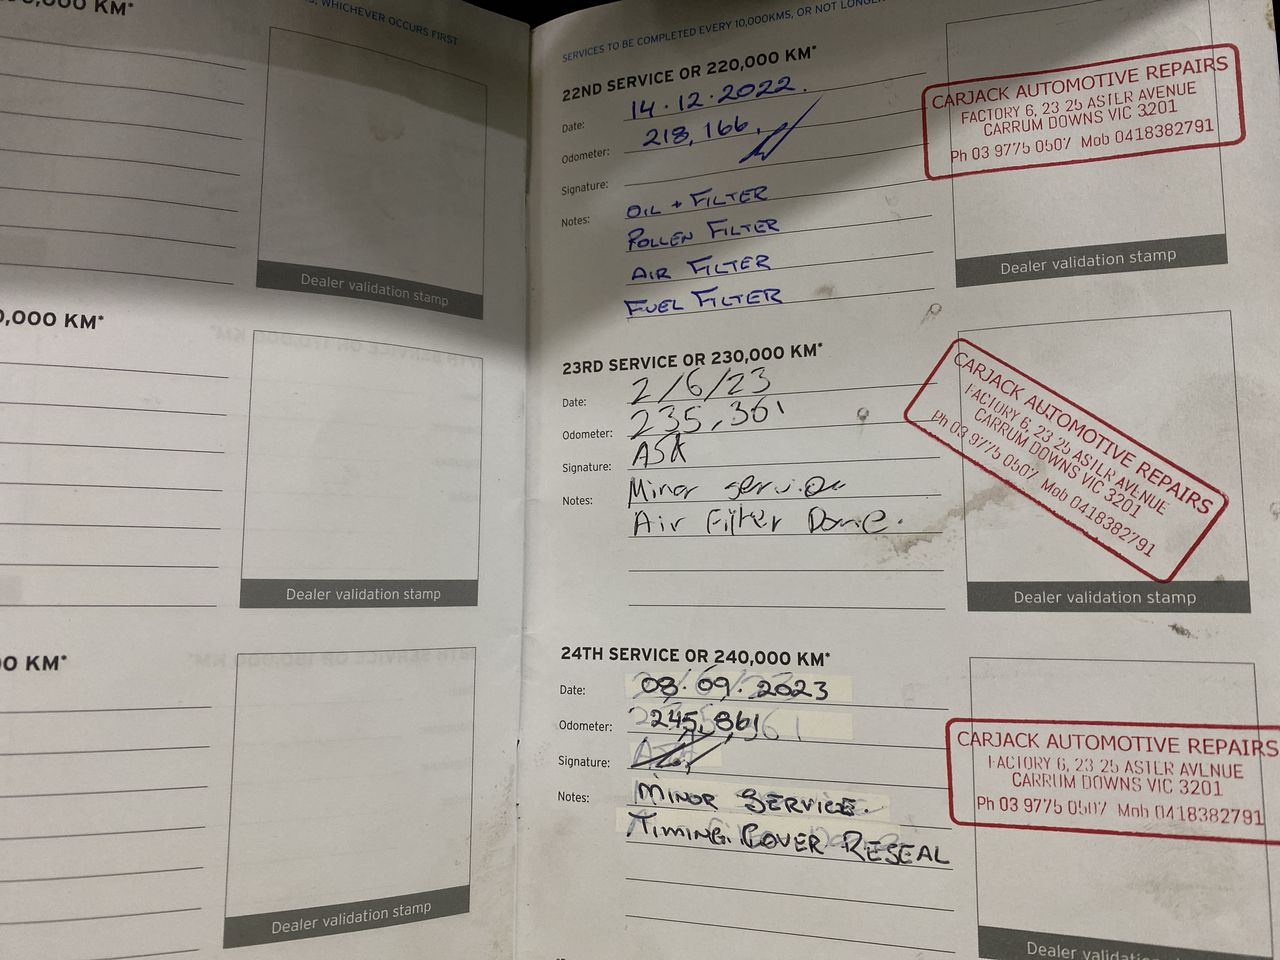 0,000 KM*
, WHICHEVER OCCURS FIRST
Dealer validation stamp
0,000 KM*
Dealer validation stamp
0 KM*
Dealer validation stamp
SERVICES TO BE COMPLETED EVERY 10,000KMS, OR NOT LONGER
22ND SERVICE OR 220,000 KM*
Date: 14.12.2022.
Odometer: 218,166.
Signature:
Notes: OIL + FILTER
POLLEN FILTER
AIR FILTER
FUEL FILTER
CARJACK AUTOMOTIVE REPAIRS
FACTORY 6, 23 25 ASTER AVENUE
CARRUM DOWNS VIC 3201
Ph 03 9775 0507 Mob 0418382791
Dealer validation stamp
23RD SERVICE OR 230,000 KM*
Date: 2/6/23
Odometer: 235,361
Signature:
Notes: Minor service
Air Filter Done.
CARJACK AUTOMOTIVE REPAIRS
FACTORY 6, 23 25 ASTER AVENUE
CARRUM DOWNS VIC 3201
Ph 03 9775 0507 Mob 0418382791
Dealer validation stamp
24TH SERVICE OR 240,000 KM*
Date: 08.09.2023
Odometer: 245,861
Signature:
Notes: MINOR SERVICE.
TIMING COVER RESEAL
CARJACK AUTOMOTIVE REPAIRS
FACTORY 6, 23 25 ASTER AVENUE
CARRUM DOWNS VIC 3201
Ph 03 9775 0507 Mob 0418382791
Dealer validation